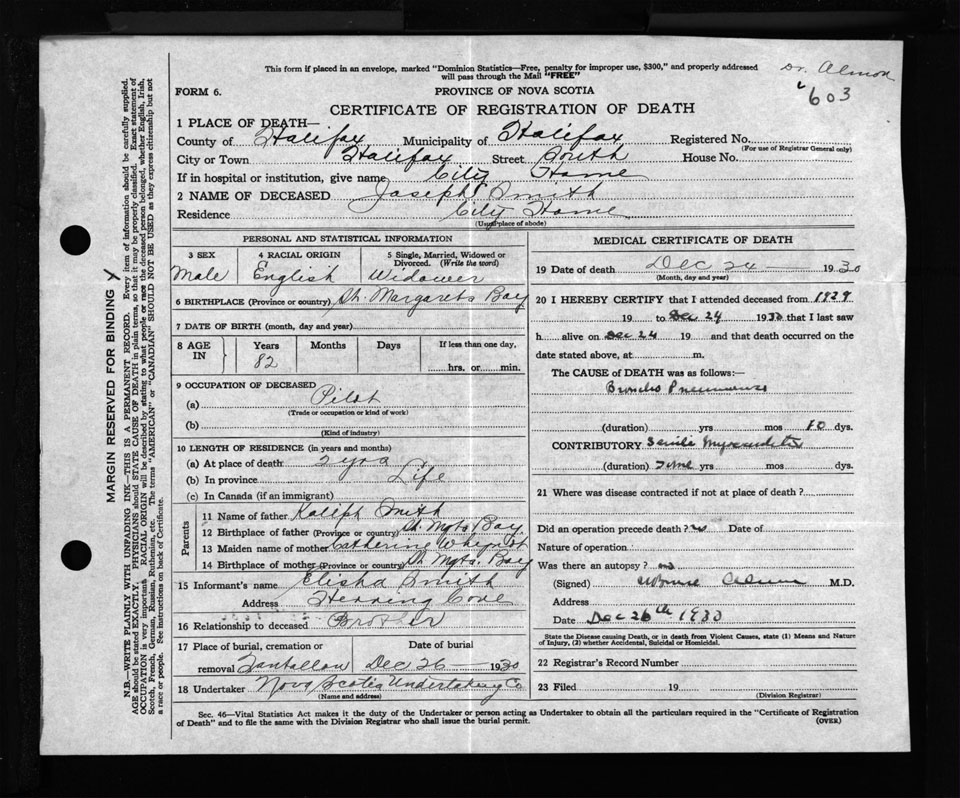 This form if placed in an envelope, marked "Dominion Statistics—Free, penalty for improper use, $300," and properly addressed
will pass through the Mail "FREE"
Dr. Almon
603
FORM 6.
PROVINCE OF NOVA SCOTIA
CERTIFICATE OF REGISTRATION OF DEATH
1 PLACE OF DEATH—
County of Halifax Municipality of Halifax Registered No.
(For use of Registrar General only)
City or Town Halifax Street South House No.
If in hospital or institution, give name City Home
2 NAME OF DECEASED Joseph Smith
Residence City Home
(Usual place of abode)
PERSONAL AND STATISTICAL INFORMATION
3 SEX 4 RACIAL ORIGIN 5 Single, Married, Widowed or Divorced. (Write the word)
Male English Widower
6 BIRTHPLACE (Province or country) St. Margarets Bay
7 DATE OF BIRTH (month, day and year)
8 AGE IN Years Months Days If less than one day,
82 hrs. or min.
9 OCCUPATION OF DECEASED
(a) Pilot
(Trade or occupation or kind of work)
(b)
(Kind of industry)
10 LENGTH OF RESIDENCE (in years and months)
(a) At place of death 2 yrs
(b) In province Life
(c) In Canada (if an immigrant)
Parents
11 Name of father Smith
12 Birthplace of father (Province or country) St. Mgts. Bay
13 Maiden name of mother Catherine
14 Birthplace of mother (Province or country) St. Mgts. Bay
15 Informant's name Elisha Smith
Address Herring Cove
16 Relationship to deceased
17 Place of burial, cremation or removal Date of burial
Dec 26 1930
18 Undertaker Nova Scotia Undertaking Co
(Name and address)
MEDICAL CERTIFICATE OF DEATH
19 Date of death Dec 24 1930
(Month, day and year)
20 I HEREBY CERTIFY that I attended deceased from 1929
19 to Dec 24 1930 that I last saw
h alive on Dec 24 19 and that death occurred on the
date stated above, at m.
The CAUSE of DEATH was as follows:—
Broncho Pneumonia
(duration) yrs mos 10 dys.
CONTRIBUTORY Senile Myocarditis
(duration) yrs mos dys.
21 Where was disease contracted if not at place of death?
Did an operation precede death? no Date of
Nature of operation
Was there an autopsy? no
(Signed) Almon M.D.
Address
Date Dec 26th 1930
State the Disease causing Death, or in death from Violent Causes, state (1) Means and Nature
of Injury, (2) whether Accidental, Suicidal or Homicidal.
22 Registrar's Record Number
23 Filed 19
(Division Registrar)
Sec. 46—Vital Statistics Act makes it the duty of the Undertaker or person acting as Undertaker to obtain all the particulars required in the "Certificate of Registration
of Death" and to file the same with the Division Registrar who shall issue the burial permit.
(OVER)
MARGIN RESERVED FOR BINDING
N.B.—WRITE PLAINLY WITH UNFADING INK—THIS IS A PERMANENT RECORD. Every item of information should be carefully supplied.
AGE should be stated EXACTLY. PHYSICIANS should STATE CAUSE OF DEATH in plain terms, so that it may be properly classified. Exact statement of
OCCUPATION is very important. RACIAL ORIGIN will be described by stating to what people or race the deceased person belonged, whether English, Irish,
Scotch, French, German, Russian, Ruthenian, etc. The terms "AMERICAN" or "CANADIAN" SHOULD NOT BE USED as they express citizenship but not
a race or people. See instructions on back of Certificate.